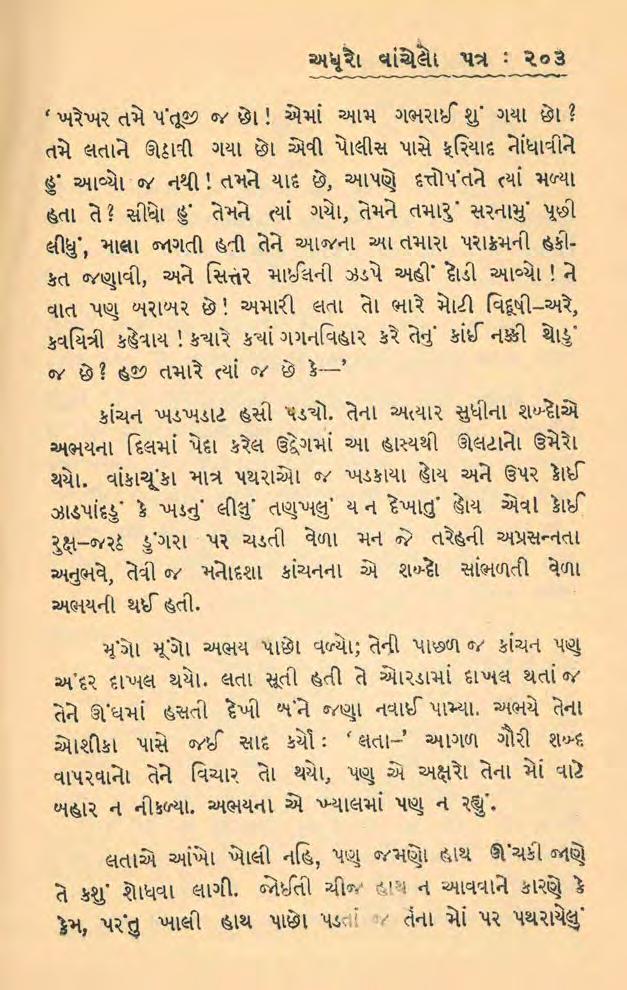 અધૂરો વાંચેલો પત્ર : ૨૦૩
‘ ખરેખર તમે પંતૂજી જ છો! એમાં આમ ગભરાઈ શું ગયા છો ?
તમે લતાને ઊઠાવી ગયા છો એવી પોલીસ પાસે ફરિયાદ નોંધાવીને
હું આવ્યો જ નથી! તમને યાદ છે, આપણે દત્તોપંતને ત્યાં મળ્યા
હતા તે? સીધો હું તેમને ત્યાં ગયો, તેમને તમારું સરનામું પૂછી
લીધું, માલા જાગતી હતી તેને આજના આ તમારા પરાક્રમની હકી-
કત જણાવી, અને સિત્તર માઈલની ઝડપે અહીં દોડી આવ્યો! ને
વાત પણ બરાબર છે! અમારી લતા તો ભારે મોટી વિદૂષી–અરે,
કવયિત્રી કહેવાય ! ક્યારે ક્યાં ગગનવિહાર કરે તેનું કાંઈ નક્કી થોડું
જ છે? હજી તમારે ત્યાં જ છે કે—’
કાંચન ખડખડાટ હસી પડ્યો. તેના અત્યાર સુધીના શબ્દોએ
અભયના દિલમાં પેદા કરેલ ઉદ્વેગમાં આ હાસ્યથી ઊલટાનો ઉમેરો
થયો. વાંકાચૂંકા માત્ર પથરાઓ જ ખડકાયા હોય અને ઉપર કોઈ
ઝાડપાંદડું કે ખડનું લીલું તણખલું ય ન દેખાતું હોય એવા કોઈ
રુક્ષ–જરઠ ડુંગરા પર ચડતી વેળા મન જે તરેહની અપ્રસન્નતા
અનુભવે, તેવી જ મનોદશા કાંચનના એ શબ્દો સાંભળતી વેળા
અભયની થઈ હતી.
મૂંગો મૂંગો અભય પાછો વળ્યો; તેની પાછળ જ કાંચન પણ
અંદર દાખલ થયો. લતા સૂતી હતી તે ઓરડામાં દાખલ થતાં જ
તેને ઊંઘમાં હસતી દેખી બંને જણા નવાઈ પામ્યા. અભયે તેના
ઓશીકા પાસે જઈ સાદ કર્યો : ‘ લતા–’ આગળ ગૌરી શબ્દ
વાપરવાનો તેને વિચાર તો થયો, પણ એ અક્ષરો તેના મોં વાટે
બહાર ન નીકળ્યા. અભયના એ ખ્યાલમાં પણ ન રહ્યું.
લતાએ આંખો ખોલી નહિ, પણ જમણો હાથ ઊંચકી જાણે
તે કશું શોધવા લાગી. જોઈતી ચીજ હાથ ન આવવાને કારણે કે
કેમ, પરંતુ ખાલી હાથ પાછો પડતાં જ તેના મોં પર પથરાયેલું